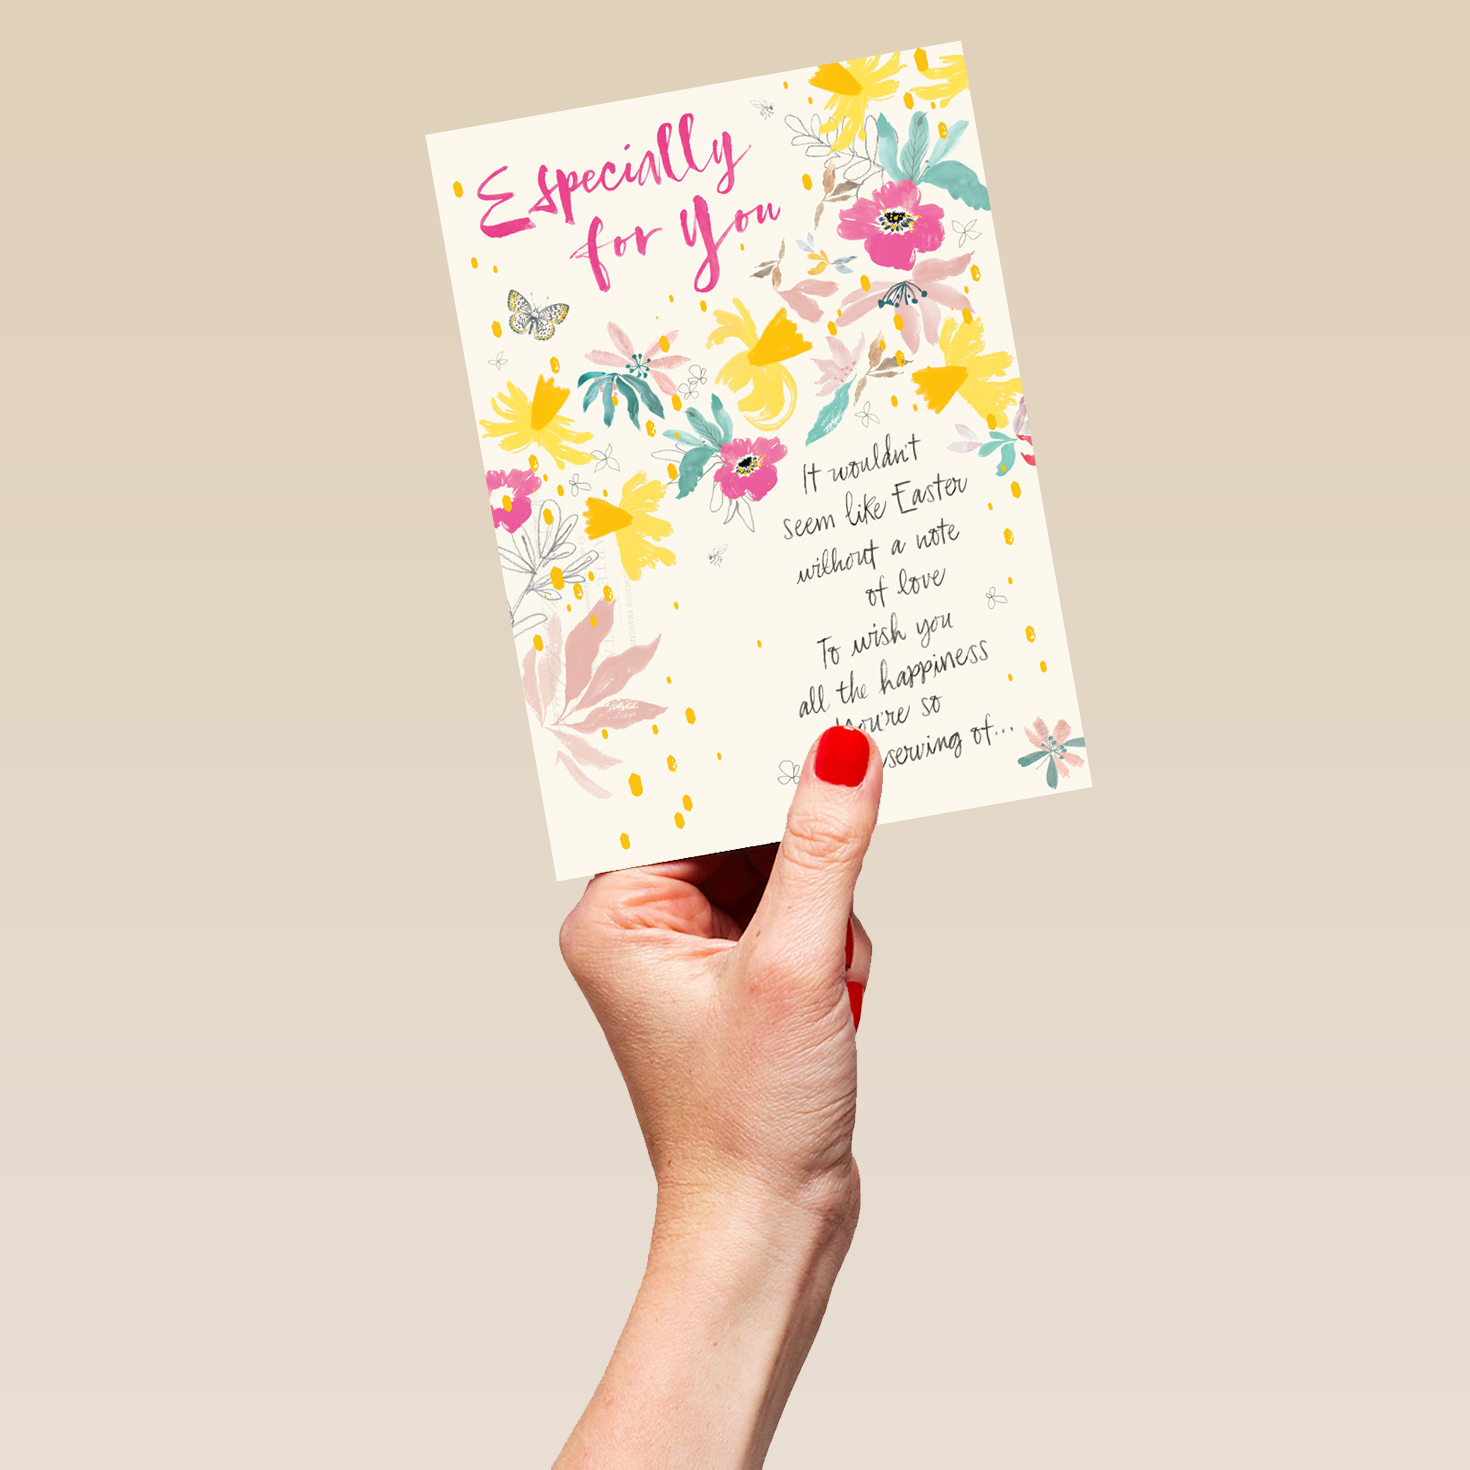 Especially
for You
It wouldn't
seem like Easter
without a note
of love
To wish you
all the happiness
You're so
serving of...